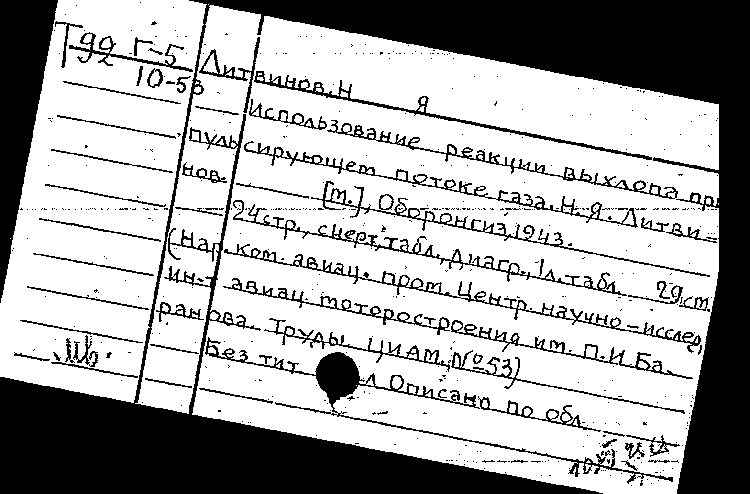 Т92 Г-5
10-53
Литвинов, Н Я
Использование реакции выхлопа при
пульсирующем потоке газа. Н. Я. Литви=
нов. [М.], Оборонгиз, 1943.
24стр., с черт., табл., диагр., 1л. табл. 29см.
(Нар. ком. авиац. пром. Центр. научно-исслед.
ин-т авиац. моторостроения им. П. И Ба.
ранова. Труды ЦИАМ, №53)
Без тит л Описано по обл